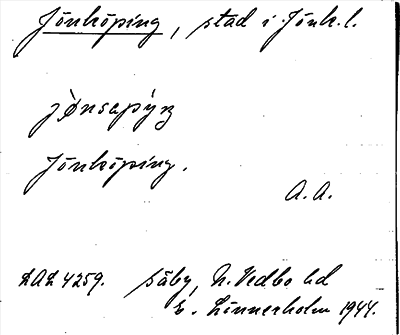 Jönköping, stad i Jönk. l.
jönsapiŋ
Jönköping.
A. A.
LAL 4259. Säby, N. Vedbo hd
E. Linnerholm 1944.